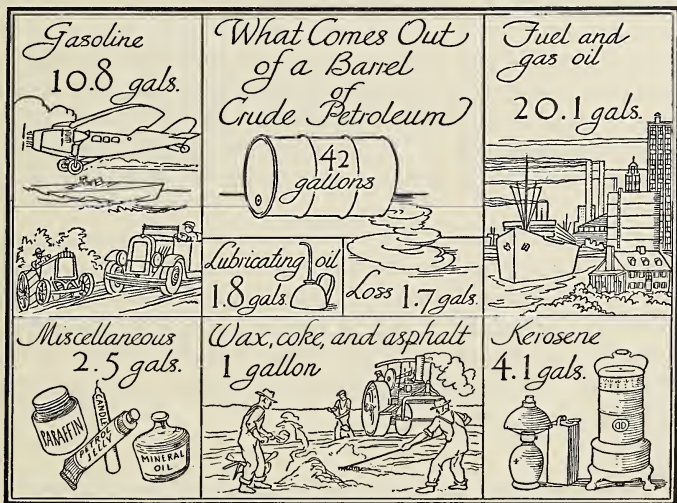 Gasoline
10.8 gals.
What Comes Out
of a Barrel
of
Crude Petroleum
42
gallons
Fuel and
gas oil
20.1 gals.
Lubricating oil
1.8 gals.
Loss 1.7 gals.
Miscellaneous
2.5 gals.
PARAFFIN
CANDLE
PETROL
JELLY
MINERAL
OIL
Wax, coke, and asphalt
1 gallon
Kerosene
4.1 gals.